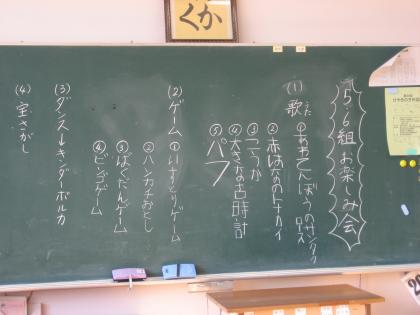 かく
5・6組 お楽しみ会
(1) 歌
①あわてんぼうのサンタクロース
②赤はなのトナカイ
③こうか
④大きな古時計
⑤パフ
(2) ゲーム
①いすとりゲーム
②ハンカチおとし
③ばくだんゲーム
④ビンゴゲーム
(3) ダンス→キンダーポルカ
(4) 宝さがし